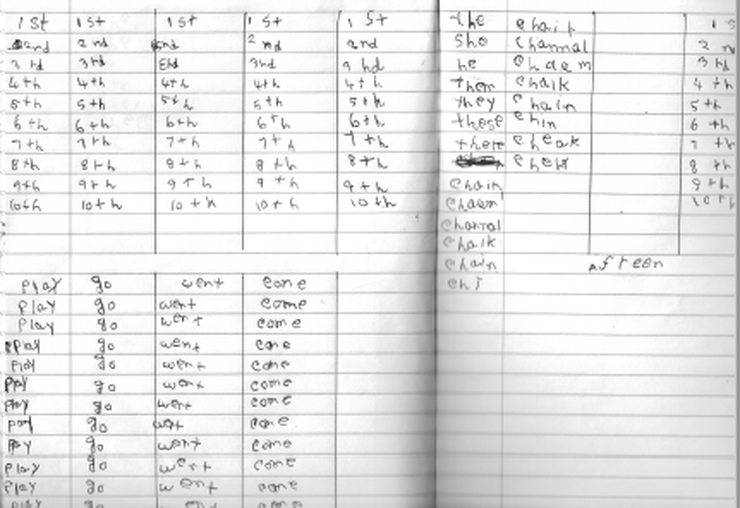 1st 1st 1st 1st 1st
2nd 2nd 2nd 2nd 2nd
3rd 3rd 3rd 3rd 3rd
4th 4th 4th 4th 4th
5th 5th 5th 5th 5th
6th 6th 6th 6th 6th
7th 7th 7th 7th 7th
8th 8th 8th 8th 8th
9th 9th 9th 9th 9th
10th 10th 10th 10th 10th
play go went come
play go went come
play go went come
play go went come
play go went come
go went come
play go went come
go come
go went come
play go went come
play go went
the chair
she channal 2
he chaem 3rd
them chalk 4th
they chain 5th
these chin 6th
there cheak 7th
8th
chain 9th
chaem 10th
channal
chalk
chain
Afreen